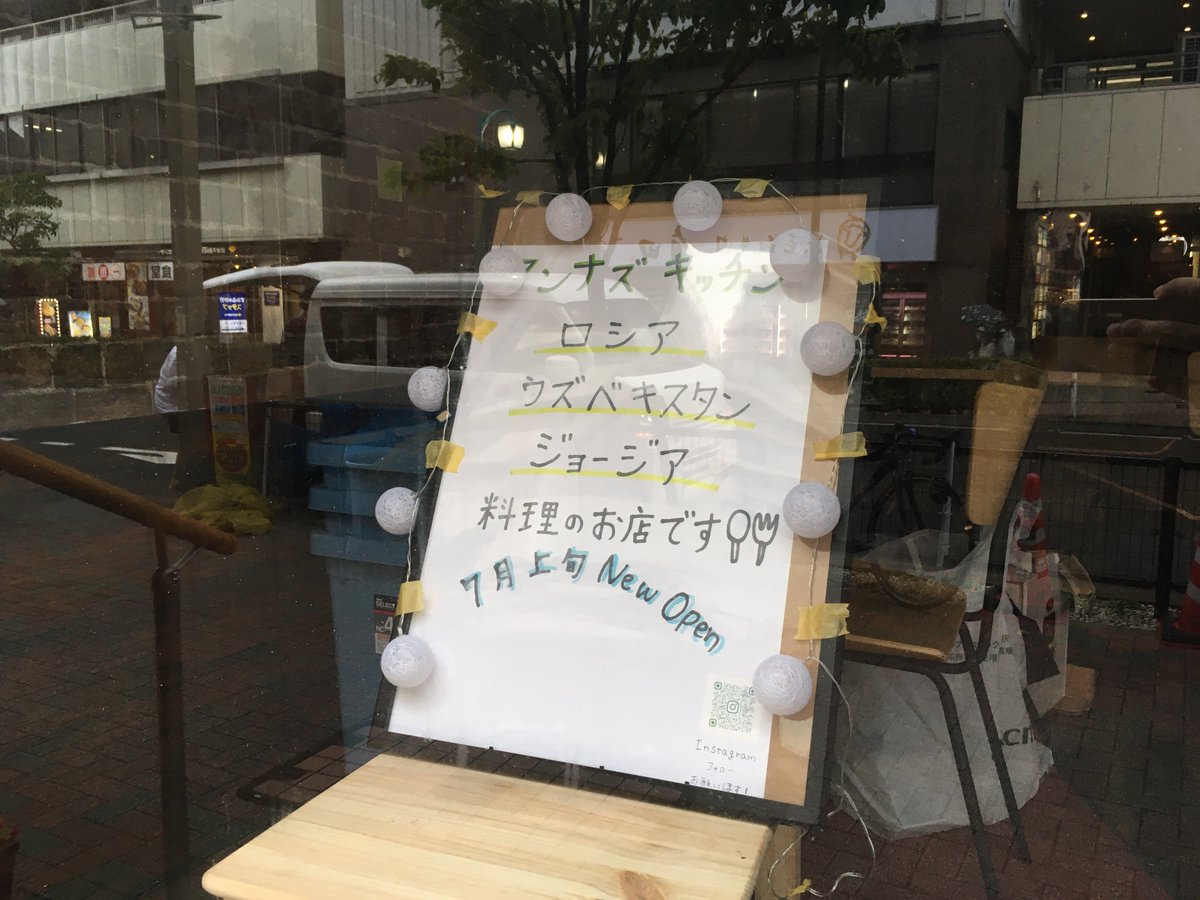 アンナズ キッチン
ロシア
ウズベキスタン
ジョージア
料理のお店です
7月上旬 New Open
Instagram
フォロー
お願いします!
食堂
スタッフ